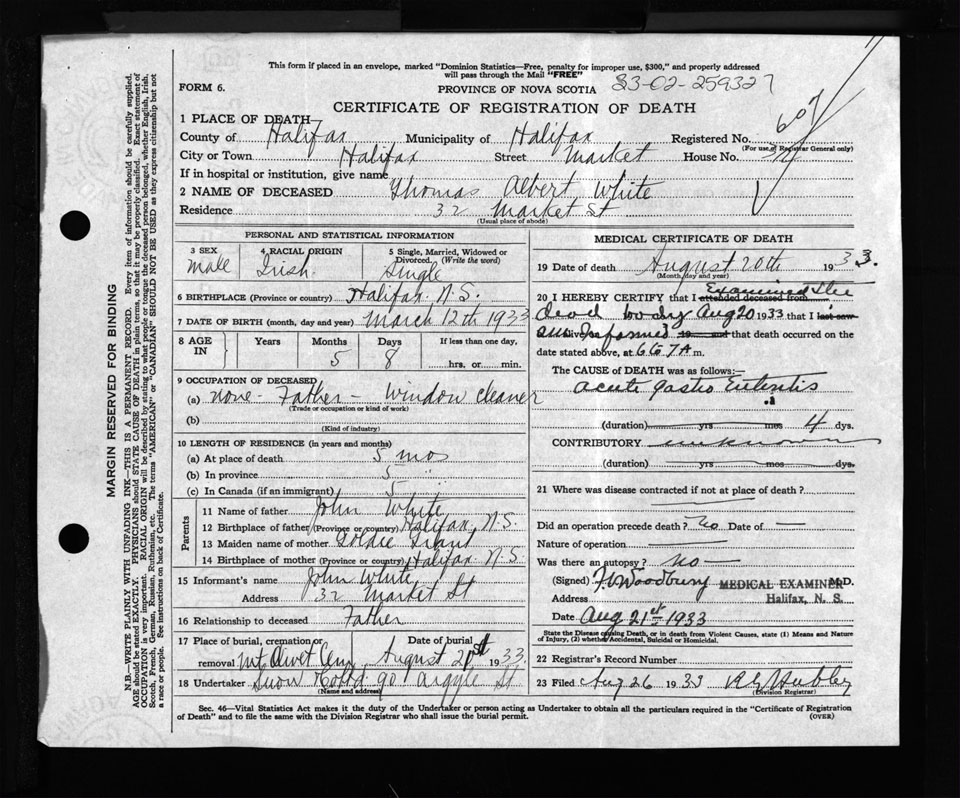 This form if placed in an envelope, marked "Dominion Statistics—Free, penalty for improper use, $300," and properly addressed
will pass through the Mail "FREE"
FORM 6. PROVINCE OF NOVA SCOTIA 33-02-259327
CERTIFICATE OF REGISTRATION OF DEATH
1 PLACE OF DEATH 607
County of Halifax Municipality of Halifax Registered No.
(For use of Registrar General only)
City or Town Halifax Street Market House No.
If in hospital or institution, give name
2 NAME OF DECEASED Thomas Albert White
Residence 32 Market St
(Usual place of abode)
PERSONAL AND STATISTICAL INFORMATION
3 SEX 4 RACIAL ORIGIN 5 Single, Married, Widowed or Divorced. (Write the word)
male Irish Single
6 BIRTHPLACE (Province or country) Halifax N.S.
7 DATE OF BIRTH (month, day and year) March 12th 1933
8 AGE IN Years Months Days If less than one day,
5 8 hrs. or min.
9 OCCUPATION OF DECEASED
(a) none - Father - Window cleaner
(Trade or occupation or kind of work)
(b)
(Kind of industry)
10 LENGTH OF RESIDENCE (in years and months)
(a) At place of death 5 mos
(b) In province 5 "
(c) In Canada (if an immigrant) 5
Parents
11 Name of father John White
12 Birthplace of father (Province or country) Halifax, N.S.
13 Maiden name of mother Goldie
14 Birthplace of mother (Province or country) Halifax N.S.
15 Informant's name John White
Address 32 Market St
16 Relationship to deceased Father
17 Place of burial, cremation or removal Mt Olivet Cem Date of burial August 21st 1933
18 Undertaker Snow 90 Argyle St
(Name and address)
MEDICAL CERTIFICATE OF DEATH
19 Date of death August 20th 1933.
(Month, day and year)
20 I HEREBY CERTIFY that I attended deceased from Examined the
dead body Aug 20 1933 that I last saw
19 and that death occurred on the
date stated above, at m.
The CAUSE of DEATH was as follows:—
acute gastro Enteritis
(duration) yrs mos 4 dys.
CONTRIBUTORY unknown
(duration) yrs mos dys.
21 Where was disease contracted if not at place of death?
Did an operation precede death? No Date of —
Nature of operation —
Was there an autopsy? No —
(Signed) Woodbury MEDICAL EXAMINER M.D.
Address Halifax, N. S.
Date Aug 21st 1933
State the Disease causing Death, or in death from Violent Causes, state (1) Means and Nature
of Injury, (2) whether Accidental, Suicidal or Homicidal.
22 Registrar's Record Number
23 Filed Aug 26 1933
(Division Registrar)
Sec. 46—Vital Statistics Act makes it the duty of the Undertaker or person acting as Undertaker to obtain all the particulars required in the "Certificate of Registration
of Death" and to file the same with the Division Registrar who shall issue the burial permit. (OVER)
MARGIN RESERVED FOR BINDING
N.B.—WRITE PLAINLY WITH UNFADING INK—THIS IS A PERMANENT RECORD. Every item of information should be carefully supplied.
AGE should be stated EXACTLY. PHYSICIANS should STATE CAUSE OF DEATH in plain terms, so that it may be properly classified. Exact statement of
OCCUPATION is very important. RACIAL ORIGIN will be described by stating to what people or tongue the deceased person belonged, whether English, Irish,
Scotch, French, German, Russian, Ruthenian, etc. The terms "AMERICAN" or "CANADIAN" SHOULD NOT BE USED as they express citizenship but not
a race or people. See instructions on back of Certificate.